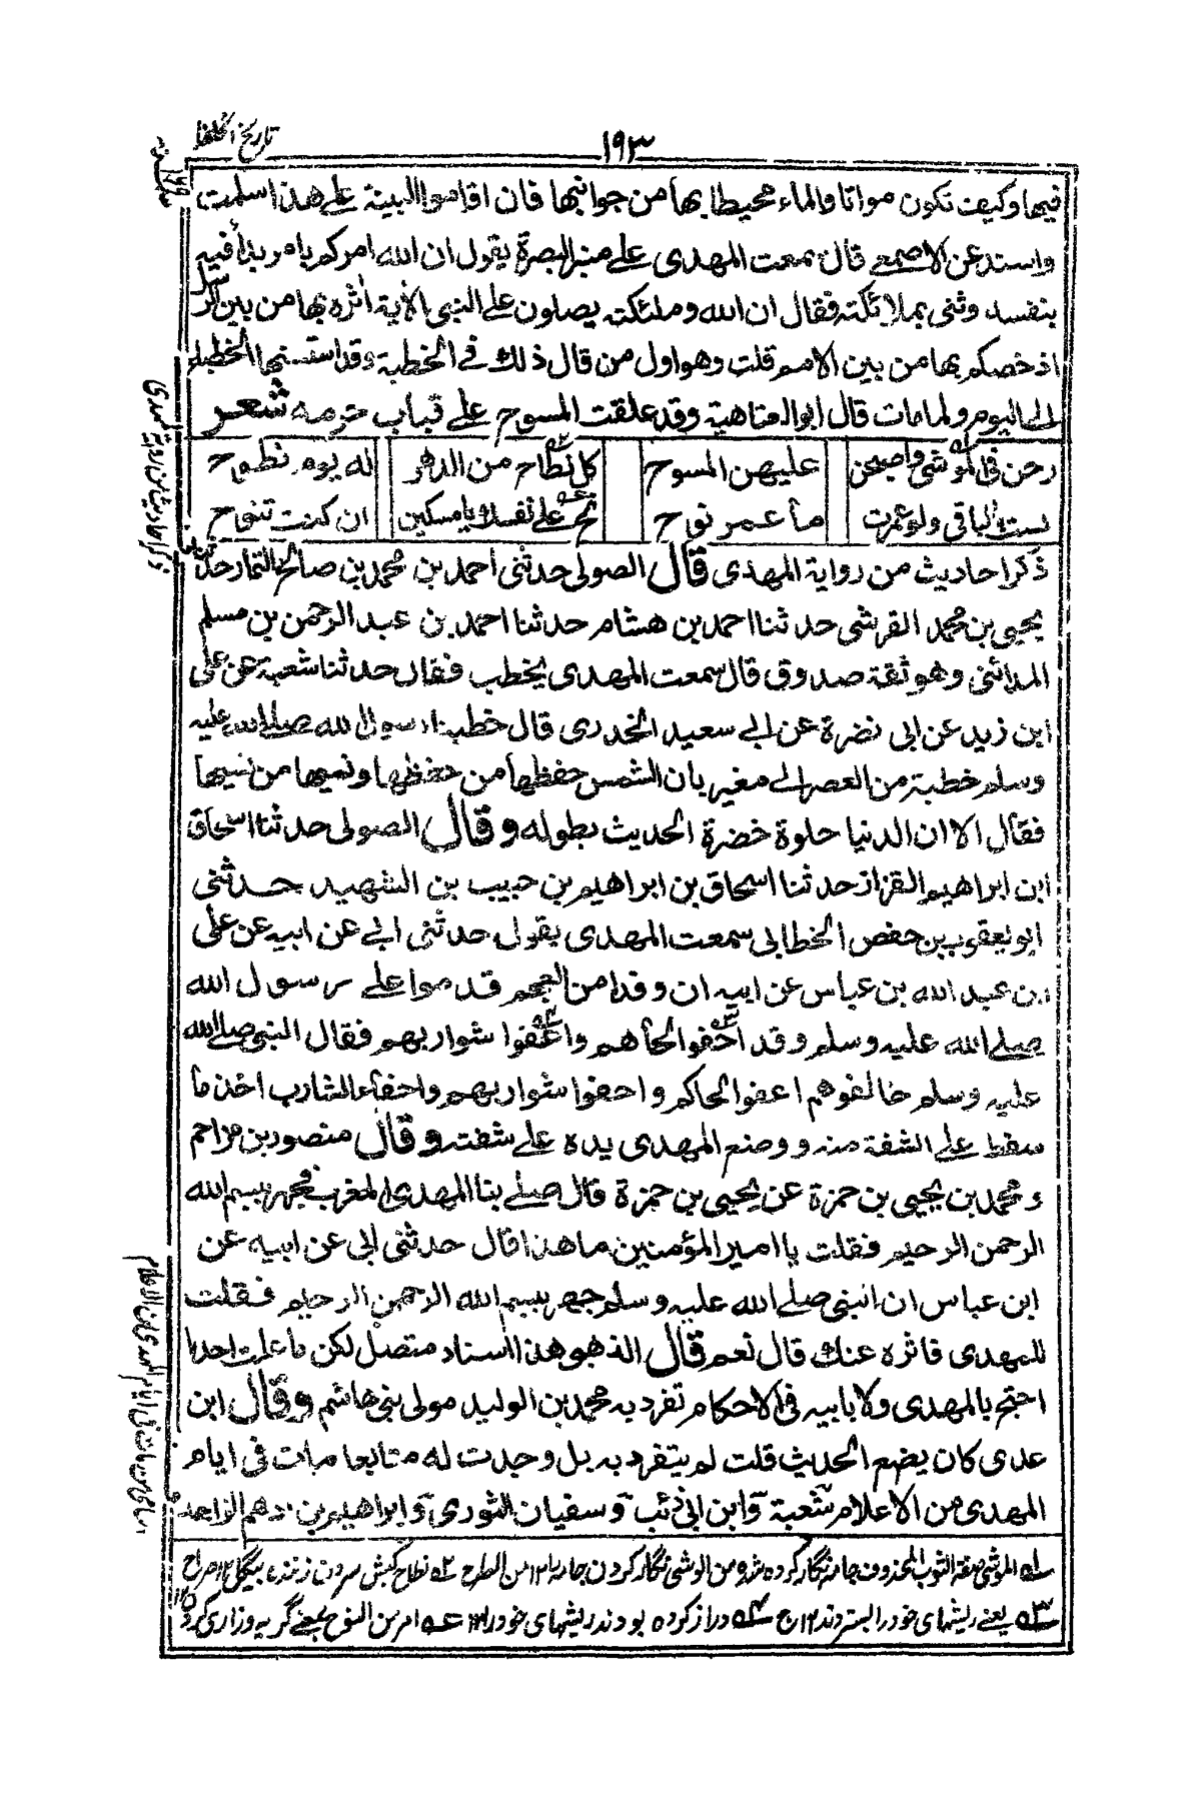 ١٩٣
تاريخ الخلفا
فيها وكيف تكون مواتا والماء محيط بها من جوانبها فان اقاموا البينة على هذا سلمت
واسند عن الاصمعي قال سمعت المهدى على منبر البصرة يقول ان الله امركم بامر بدأ فيه
بنفسه وثنى بملائكته فقال ان الله وملئكته يصلون على النبى الأية اثره بها من بين الرسل
اذ خصكم بها من بين الامم قلت وهو اول من قال ذلك في الخطبة وقد استسنها الخطباء
الى اليوم ولما مات قال ابو العتاهية وقد علقت المسوح على قباب حرمه شعر
رحن فى الموشى واصبحن عليهن المسوح كل نطاح من الدهر له يوم نطوح
لست بالباقى ولو عمرت ما عمر نوح نح على نفسك يا مسكين ان كنت تنوح
ذكر احاديث من رواية المهدى قال الصولى حدثنى احمد بن محمد بن صالح التمار حدثنا
يحيى بن محمد القرشى حدثنا احمد بن هشام حدثنا احمد بن عبد الرحمن بن مسلم
المدائنى وهو ثقة صدوق قال سمعت المهدى يخطب فقال حدثنا شعبة عن على
ابن زيد عن ابى نضرة عن ابي سعيد الخدرى قال خطبنا رسول الله صلى الله عليه
وسلم خطبة من العصر الى مغيربان الشمس حفظها من حفظها ونسيها من نسيها
فقال الا ان الدنيا حلوة خضرة الحديث بطوله وقال الصولى حدثنا اسحاق
ابن ابراهيم القزاز حدثنا اسحاق بن ابراهيم بن حبيب بن الشهيد حدثنى
ابو يعقوب بن حفص الخطابى سمعت المهدى يقول حدثنى ابي عن ابيه عن على
ابن عبد الله بن عباس عن ابيه ان وفدا من العجم قدموا على رسول الله
صلى الله عليه وسلم وقد احفوا لحاهم واعفوا شواربهم فقال النبى صلى الله
عليه وسلم خالفوهم اعفوا لحاكم واحفوا شواربهم واحفاء الشارب اخذ ما
سقط على الشفة منه ووضع المهدى يده على شفته وقال منصور بن مزاحم
ومحمد بن يحيى بن حمزة عن يحيى بن حمزة قال صلى بنا المهدى المغرب فجهر ببسم الله
الرحمن الرحيم فقلت يا امير المؤمنين ما هذا قال حدثنى ابى عن ابيه عن
ابن عباس ان النبى صلى الله عليه وسلم جهر ببسم الله الرحمن الرحيم فقلت
للمهدى فاثره عنك قال نعم قال الذهبى هذا اسناد متصل لكن ما علمت احدا
احتج بالمهدى ولا بابيه فى الاحكام تفرد به محمد بن الوليد مولى بنى هاشم وقال ابن
عدى كان يضع الحديث قلت لم يتفرد به بل وجدت له متابعا مات فى ايام
المهدى من الاعلام شعبة وابن ابى ذئب وسفيان الثورى وابراهيم بن ادهم الزاهد
الموشى صفة الثوب المحذوف جامه نگار كرده شده من الوشى نگار كردن جامه ١٢ من الصراح نطاح كبش سرون زننده ١٢ صراح
يعنے ريشهاى خود را ستردند ١٢ دراز كرده بودند ريشهاى خود را ١٢ امر من النوح بمعنے گريه وزارى كردن ١٢
ذكر احاديث من رواية مهدى
اسامى من مات فى ايام المهدى من الاعلام